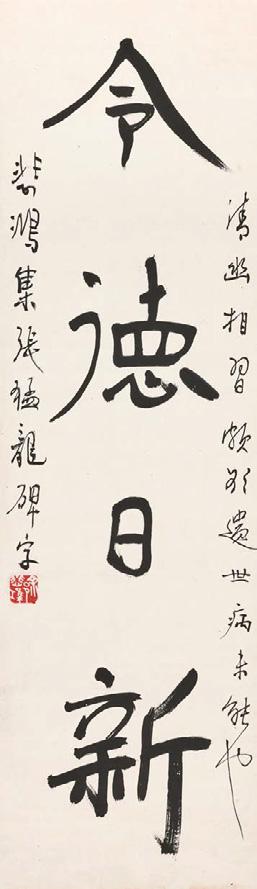 清幽相習頗欲遺世病未能也
令德日新
悲鴻集張猛龍碑字